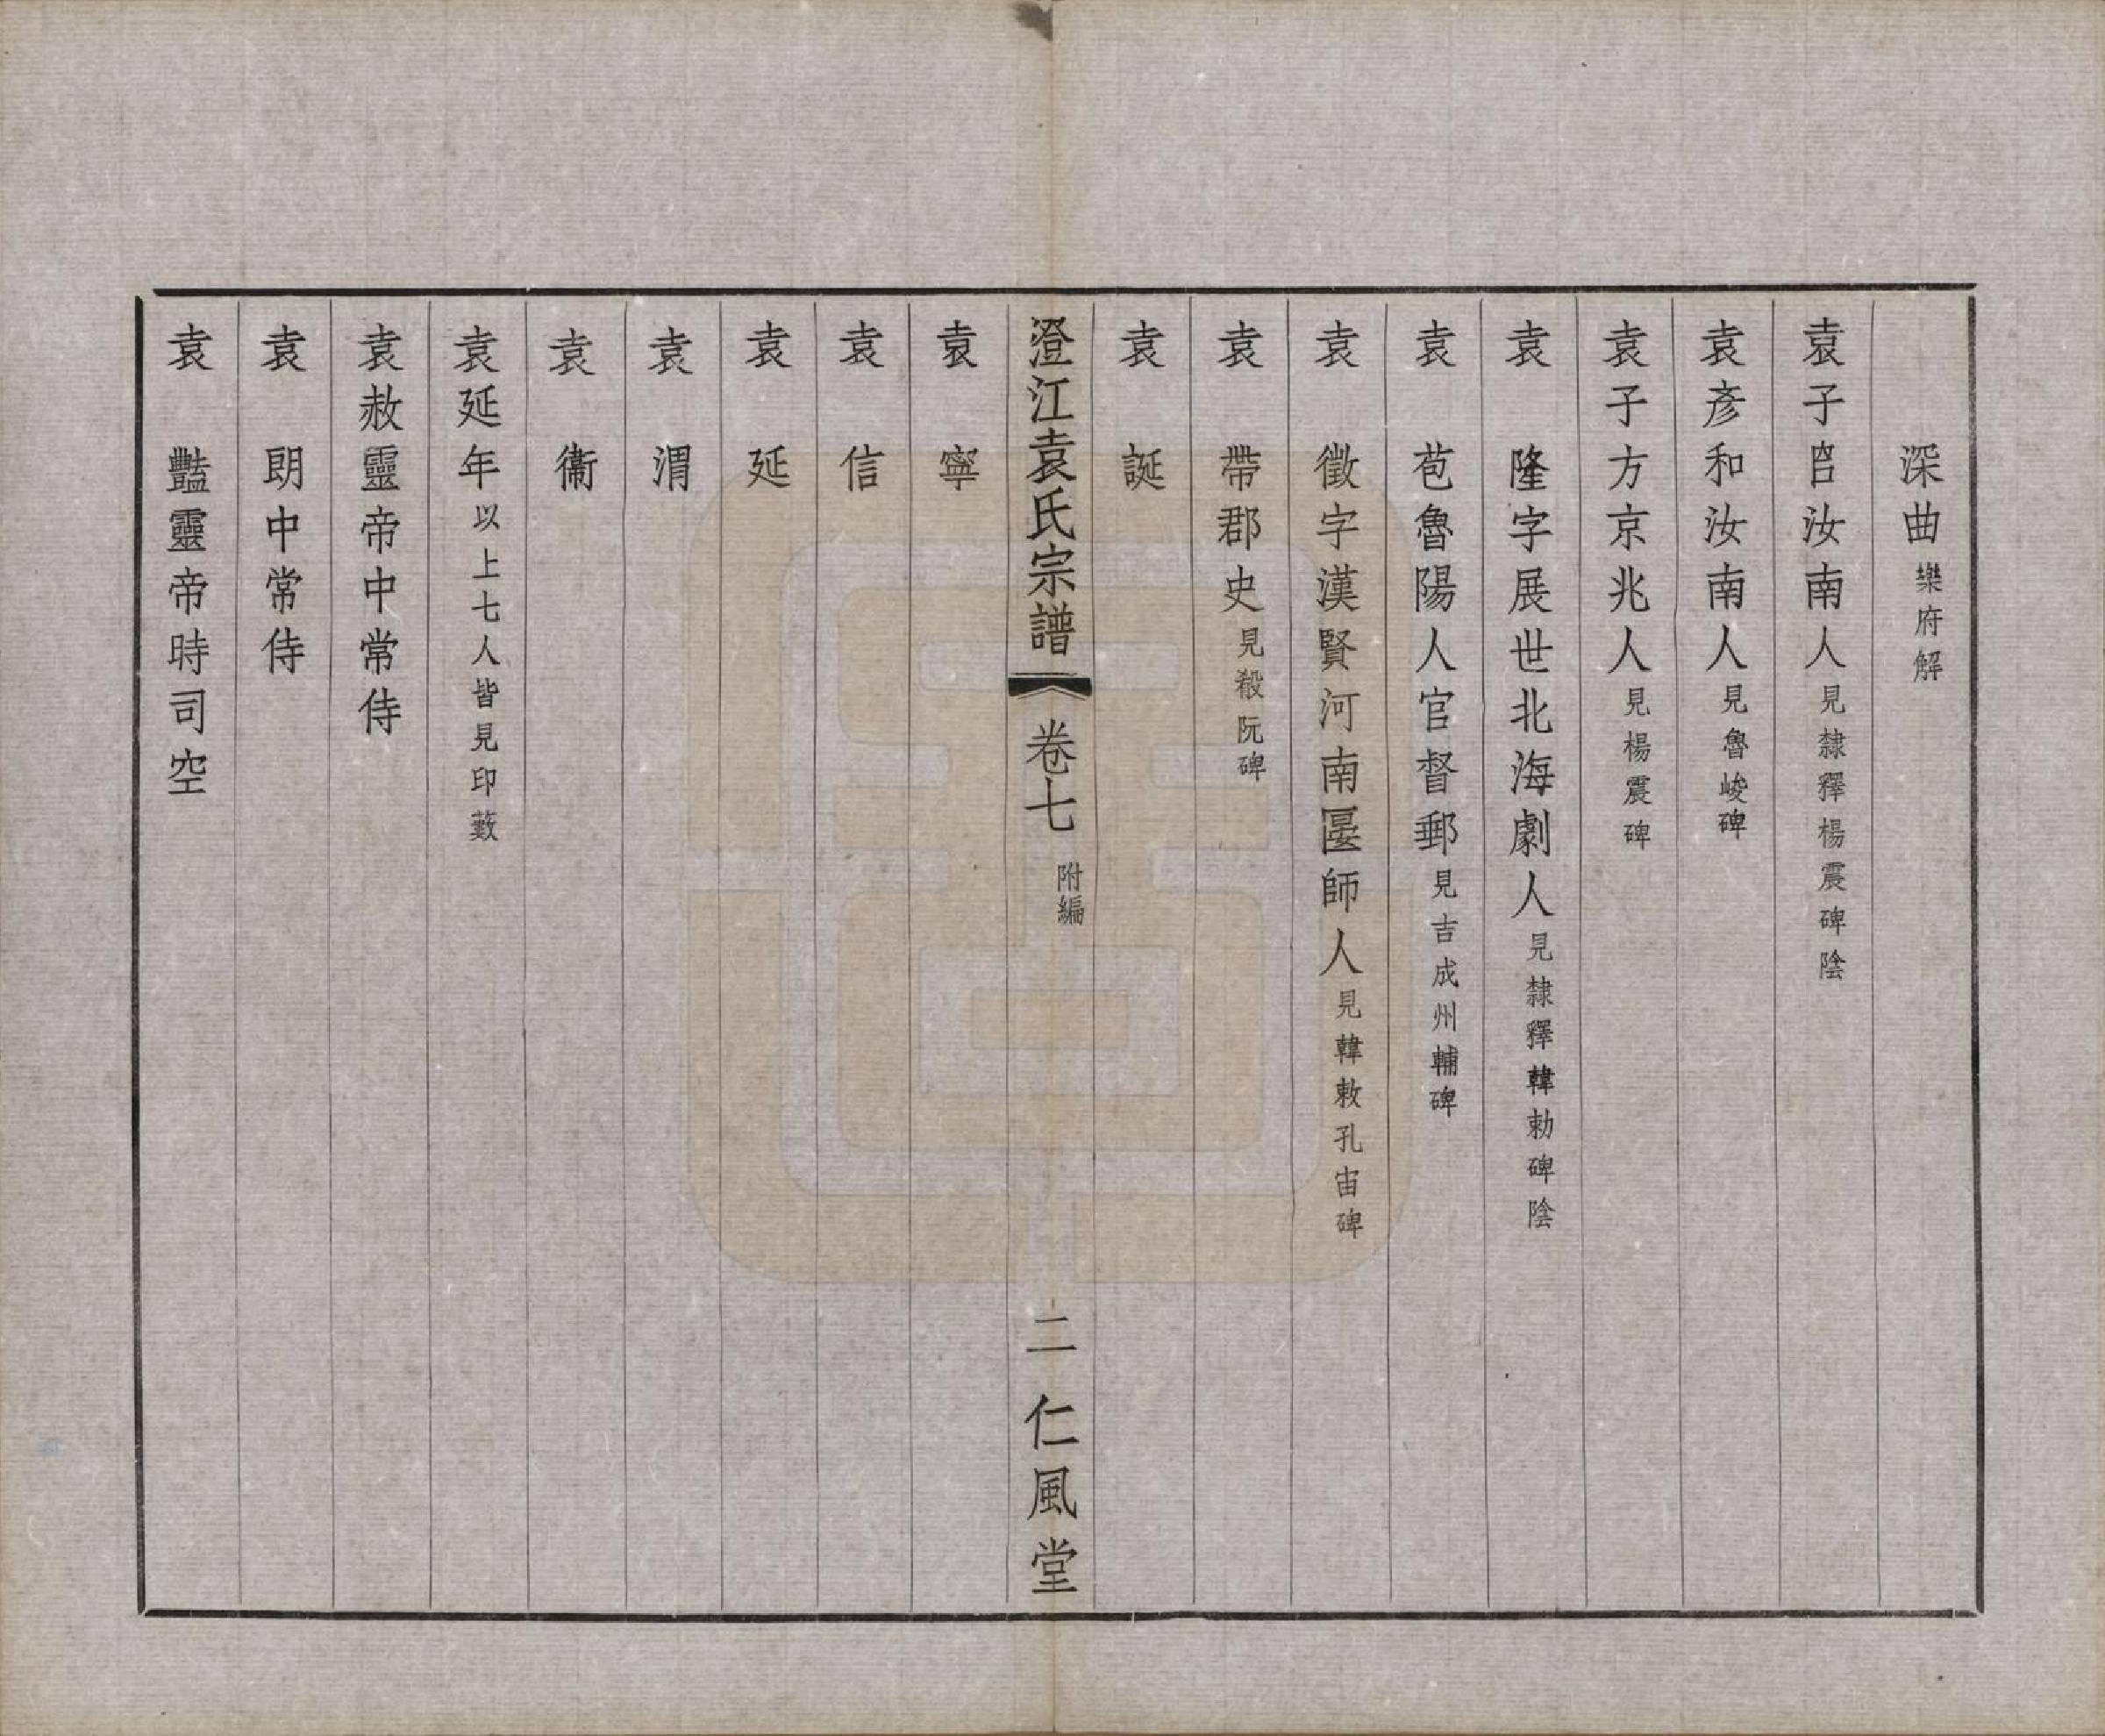 深曲樂府解
袁子㠯汝南人見隸釋楊震碑陰
袁彥和汝南人見魯峻碑
袁子方京兆人見楊震碑
袁　隆字展世北海劇人見隸釋韓勅碑陰
袁　苞魯陽人官督郵見吉成州輔碑
袁　徵字漢賢河南匽師人見韓敕孔宙碑
袁　帶郡史見殽阮碑
袁　誕
澄江袁氏宗譜　卷七　附編　二　仁風堂
袁　寧
袁　信
袁　延
袁　渭
袁　衞
袁延年以上七人皆見印藪
袁赦靈帝中常侍
袁　朗中常侍
袁　豔靈帝時司空